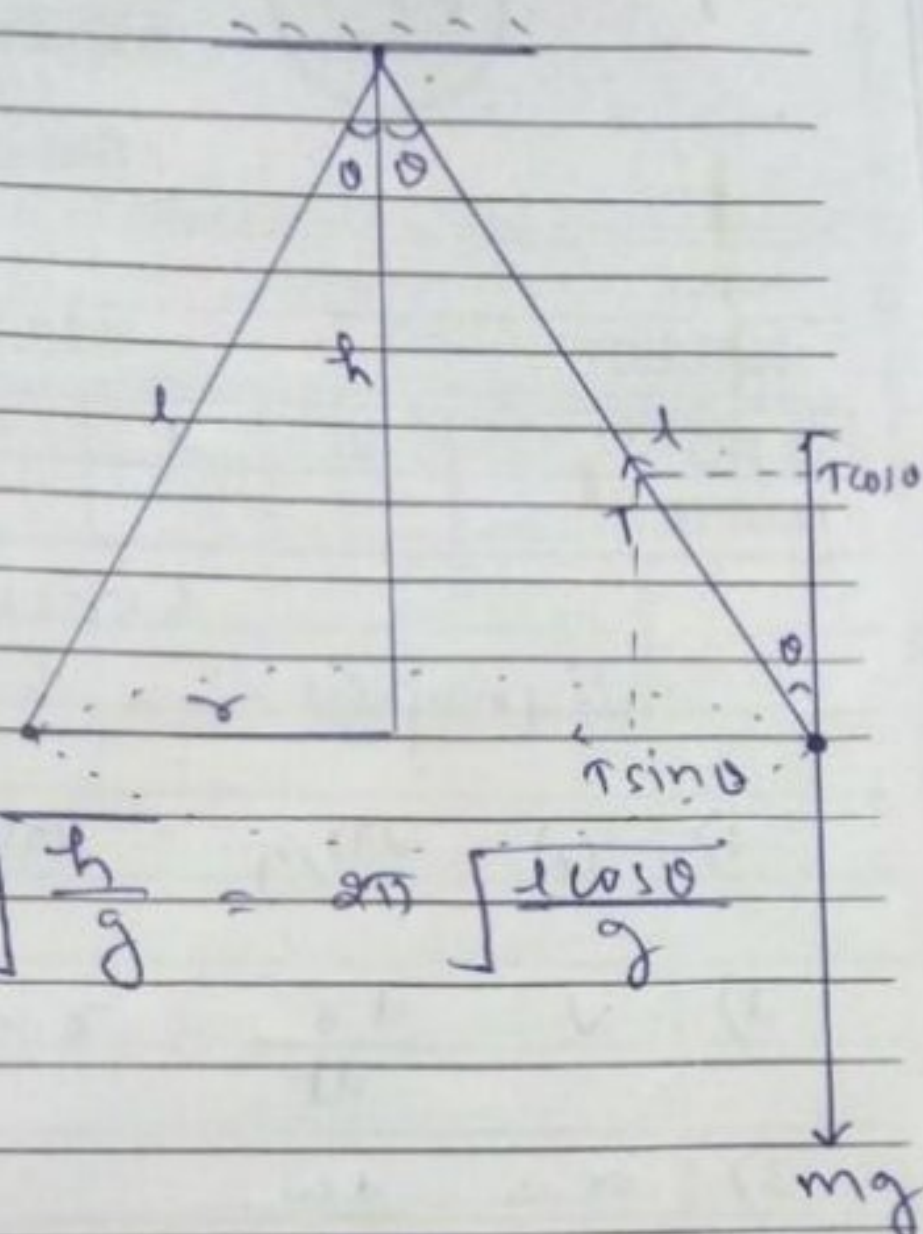 θ θ
h
l
l
T cos θ
T
θ
r
T sin θ
√h/g = 2π √l cos θ/g
mg